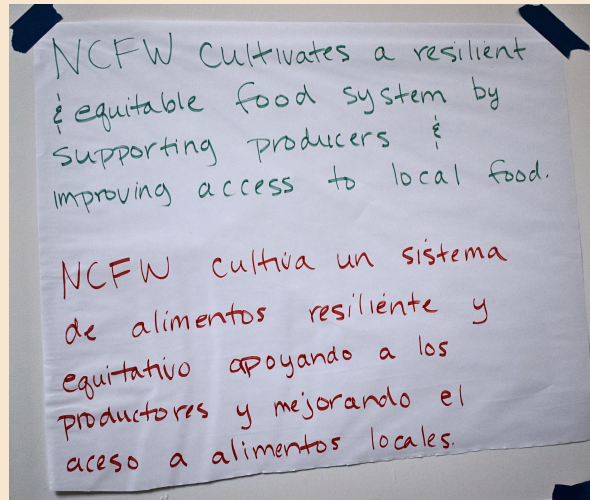 NCFW Cultivates a resilient
& equitable food system by
supporting producers &
improving access to local food.
NCFW cultiva un sistema
de alimentos resiliente y
equitativo apoyando a los
productores y mejorando el
aceso a alimentos locales.